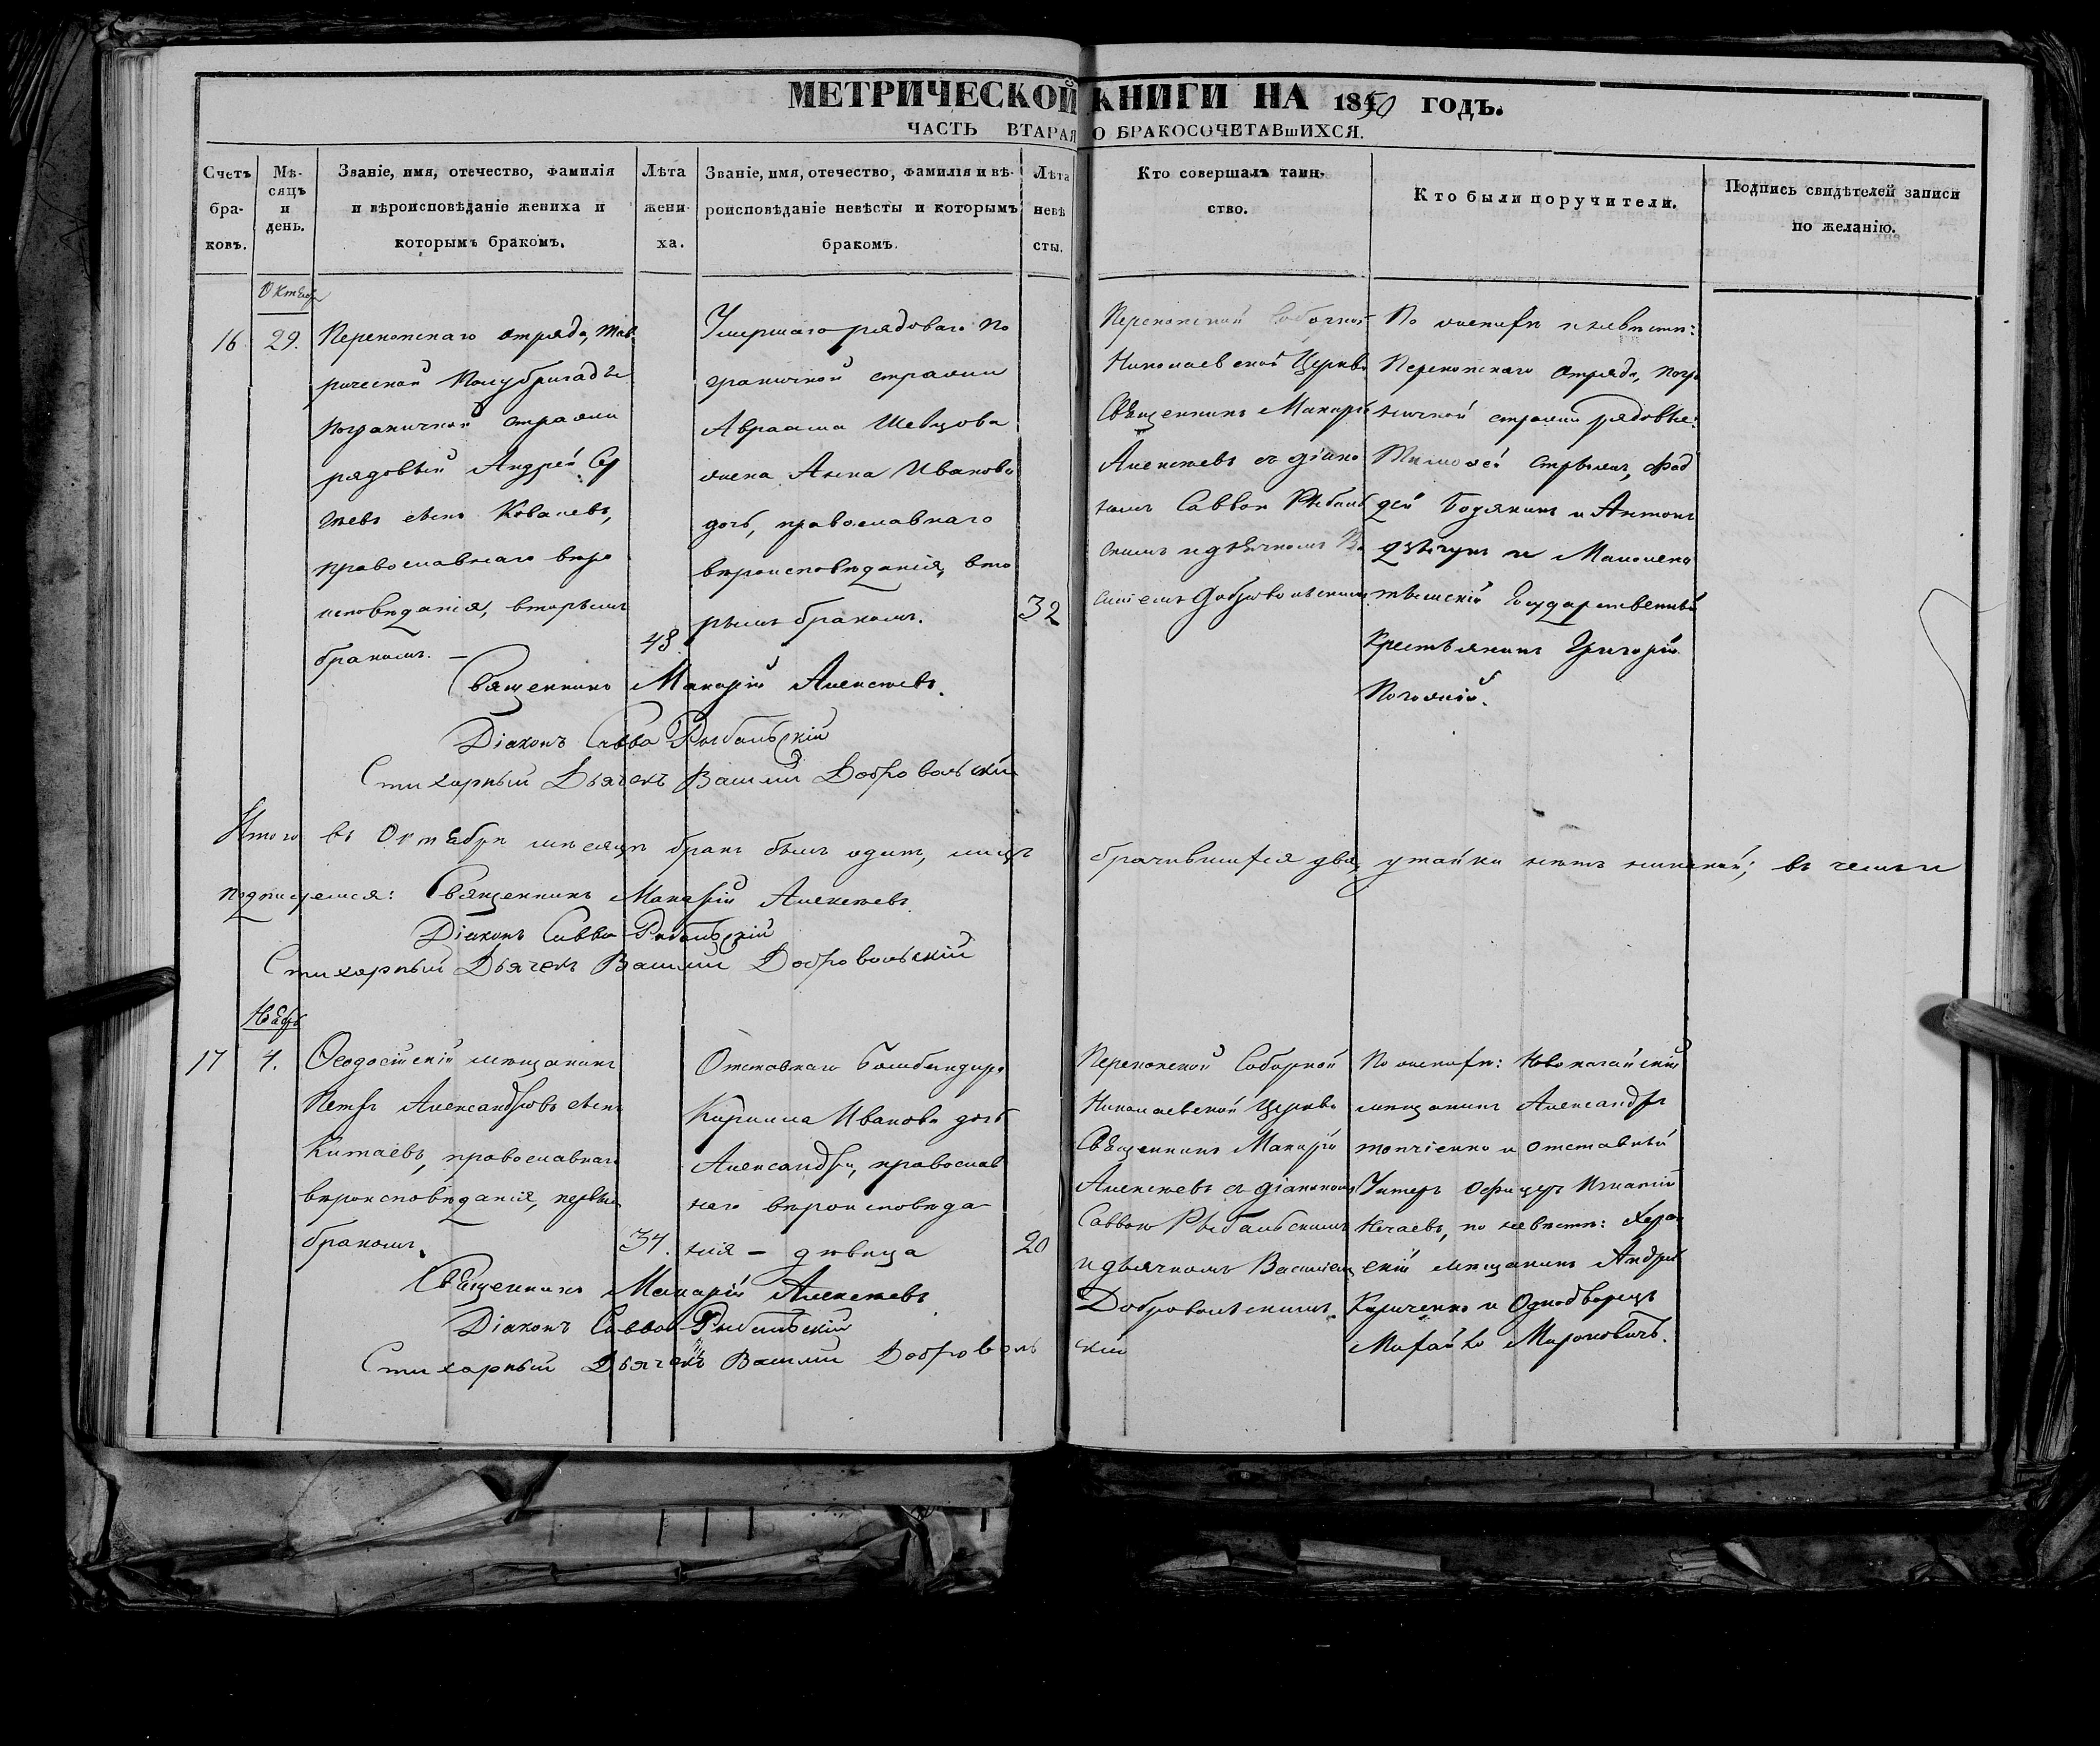 МЕТРИЧЕСКОЙ КНИГИ НА 1850 ГОДЪ.
ЧАСТЬ ВТАРАЯ О БРАКОСОЧЕТАВшИХСЯ.
Счетъ бра- ковъ.
Мѣ- сяцъ и день.
Званіе, имя, отечество, фамилія и вѣроисповѣданіе жениха и которымъ бракомъ.
Лѣта жени- ха.
Званіе, имя, отечество, фамилія и вѣ- роисповѣданіе невѣсты и которымъ бракомъ.
Лѣта невѣ сты.
Кто совершалъ таин- ство.
Кто были поручители.
Подпись свидѣтелей записи по желанію.
Октябр
16
29.
Перекопскаго отряда, Тав
рической Полубригады
пограничной стражи
рядовый Андрей Сер
геевъ сынъ Ковалевъ,
православнаго веро
исповѣданія, вторымъ
бракомъ. —
48.
Умершаго рядоваго по
граничной стражи
Авраама Шевцова
жена Анна Иванова
дочь, православнаго
вѣроисповѣданія, вто
рымъ бракомъ.
32
Перекопской Соборной
Николаевской Церкви
Священникъ Макарій
Алексѣевъ съ діако
номъ Саввою Рыбаль
скимъ и дьячкомъ Ва
силіемъ Добровольскимъ
По женихѣ и невѣстѣ:
Перекопскаго отряда, погра
ничной стражи рядовые:
Тимофей Стрѣлецъ, Фад
дей Бодякинъ и Антонъ
и
Государственный
Крестьянинъ Григорій
Священникъ Макарій Алексѣевъ.
Діаконъ Савва Рыбальскій
Стихарный Дьячекъ Василий Добровольский
Итого въ Октябрѣ мѣсяцѣ бракъ былъ одинъ, лицъ брачившихся два, утайки нѣтъ никакой; въ чемъ и
подписуемся: Священникъ Макарій Алексѣевъ
Діаконъ Савва Рыбальскій
Стихарный Дьячекъ Василий Добровольский
Ноябрь
17
4.
Ѳеодосійскій мѣщанинъ
Петръ Александровъ сынъ
Китаевъ, православнаго
вѣроисповѣданія, первымъ
бракомъ.
34.
Отставнаго бомбандира
Кирилла Иванова дочь
Александра, православ
наго вѣроисповѣда
нія — дѣвица
20
Перекопской Соборной
Николаевской Церкви
Священникъ Макарій
Алексѣевъ съ діакономъ
Саввою Рыбальскимъ
и дьячкомъ Василіемъ
Добровольскимъ.
По женихѣ: Новоногайскій
мѣщанинъ Александръ
и отставный
Унтеръ Офицеръ Игнатій
Нечаевъ, по невѣстѣ: Херсо
скій мѣщанинъ Андрей
Кириченко и Однодворецъ
Мироновичъ.
Священникъ Макарій Алексѣевъ
Діаконъ Савва Рыбальскій
Стихарный Дьячекъ Василий Добровольский